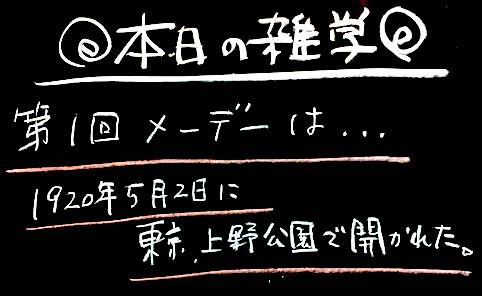 ◎本日の雑学◎
第1回メーデーは...
1920年5月2日に
東京.上野公園で開かれた。